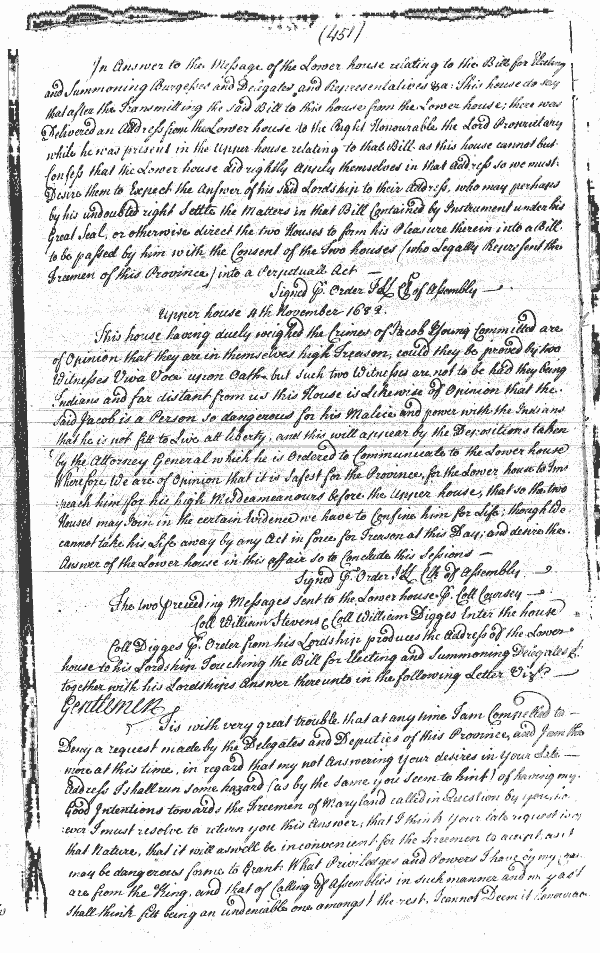 (451)
In Answer to the Message of the Lower house relating to the Bill for Electing
and Summoning Burgesses and Delegates and Representatives &a: This house do say
that after the Transmitting the said Bill to this house from the Lower house; there was
Delivered an Address from the Lower house to the Right Honourable the Lord Proprietary
while he was present in the Upper house relating to that Bill. as this house cannot but
Confess that the Lower house did rightly Apply themselves in that Address so we must
Desire them to Expect the Answer of his said Lordship to their Address, who may perhaps
by his undoubted right Settle the Matters in that Bill Contained by Instrument under his
Great Seal, or otherwise direct the two Houses to form his Pleasure therein into a Bill
to be passed by him with the Consent of the Two houses (who Legally Represent the
Freemen of this Province) into a Perpetuall Act
Signed P. Order of Assembly
Upper house 4th November 1682.
This house having duely weighed the Crimes of Jacob Young Committed are
of Opinion that they are in themselves high Treason, could they be proved by two
Witnesses Viva Voce upon Oath but such two Witnesses are not to be had they being
Indians and far distant from us this House is Likewise of Opinion that the
said Jacob is a Person so dangerous for his Malice and power with the Indians
that he is not fitt to Live att liberty, and this will appear by the Depositions taken
by the Attorney General which he is Ordered to Communicate to the Lower house
Wherefore We are of Opinion that it is Safest for the Province, for the Lower house to Im
peach him for his high Misdemeanours before the Upper house, that so the two
Houses may Join in the certain Evidence we have to Confine him for Life; though We
cannot take his Life away by any Act in force for Treason at this Day; and desire the
Answer of the Lower house in this affair so to Conclude this Sessions
Signed P. Order Clk of Assembly
The two preceding Messages sent to the Lower house P. Coll Coursey
Coll William Stevens & Coll William Digges Enter the house
Coll Digges P. Order from his Lordship produces the Address of the Lower
house to his Lordship Touching the Bill for Electing and Summoning Delegates &c
together with his Lordships Answer thereunto in the following Letter Vizt
Gentlemen
Tis with very great trouble that at any time I am Compelled to
Deny a request made by the Delegates and Deputies of this Province, and I am the
more at this time, in regard that my not Answering your desires in Your Late
Address I shall run some hazard (as by the same you seem to hint) of having my
Good Intentions towards the Freemen of Maryland called in Question by you, how
ever I must resolve to return you this Answer, that I think Your late request is of
that Nature, that it will as well be inconvenient for the Freemen to accept, as it
may be dangerous for me to Grant. What Priviledges and Powers I have by my
are from the King, and that of Calling of Assemblies in such manner and way as I
shall think fitt being an undeniable one amongst the rest. I cannot Deem it